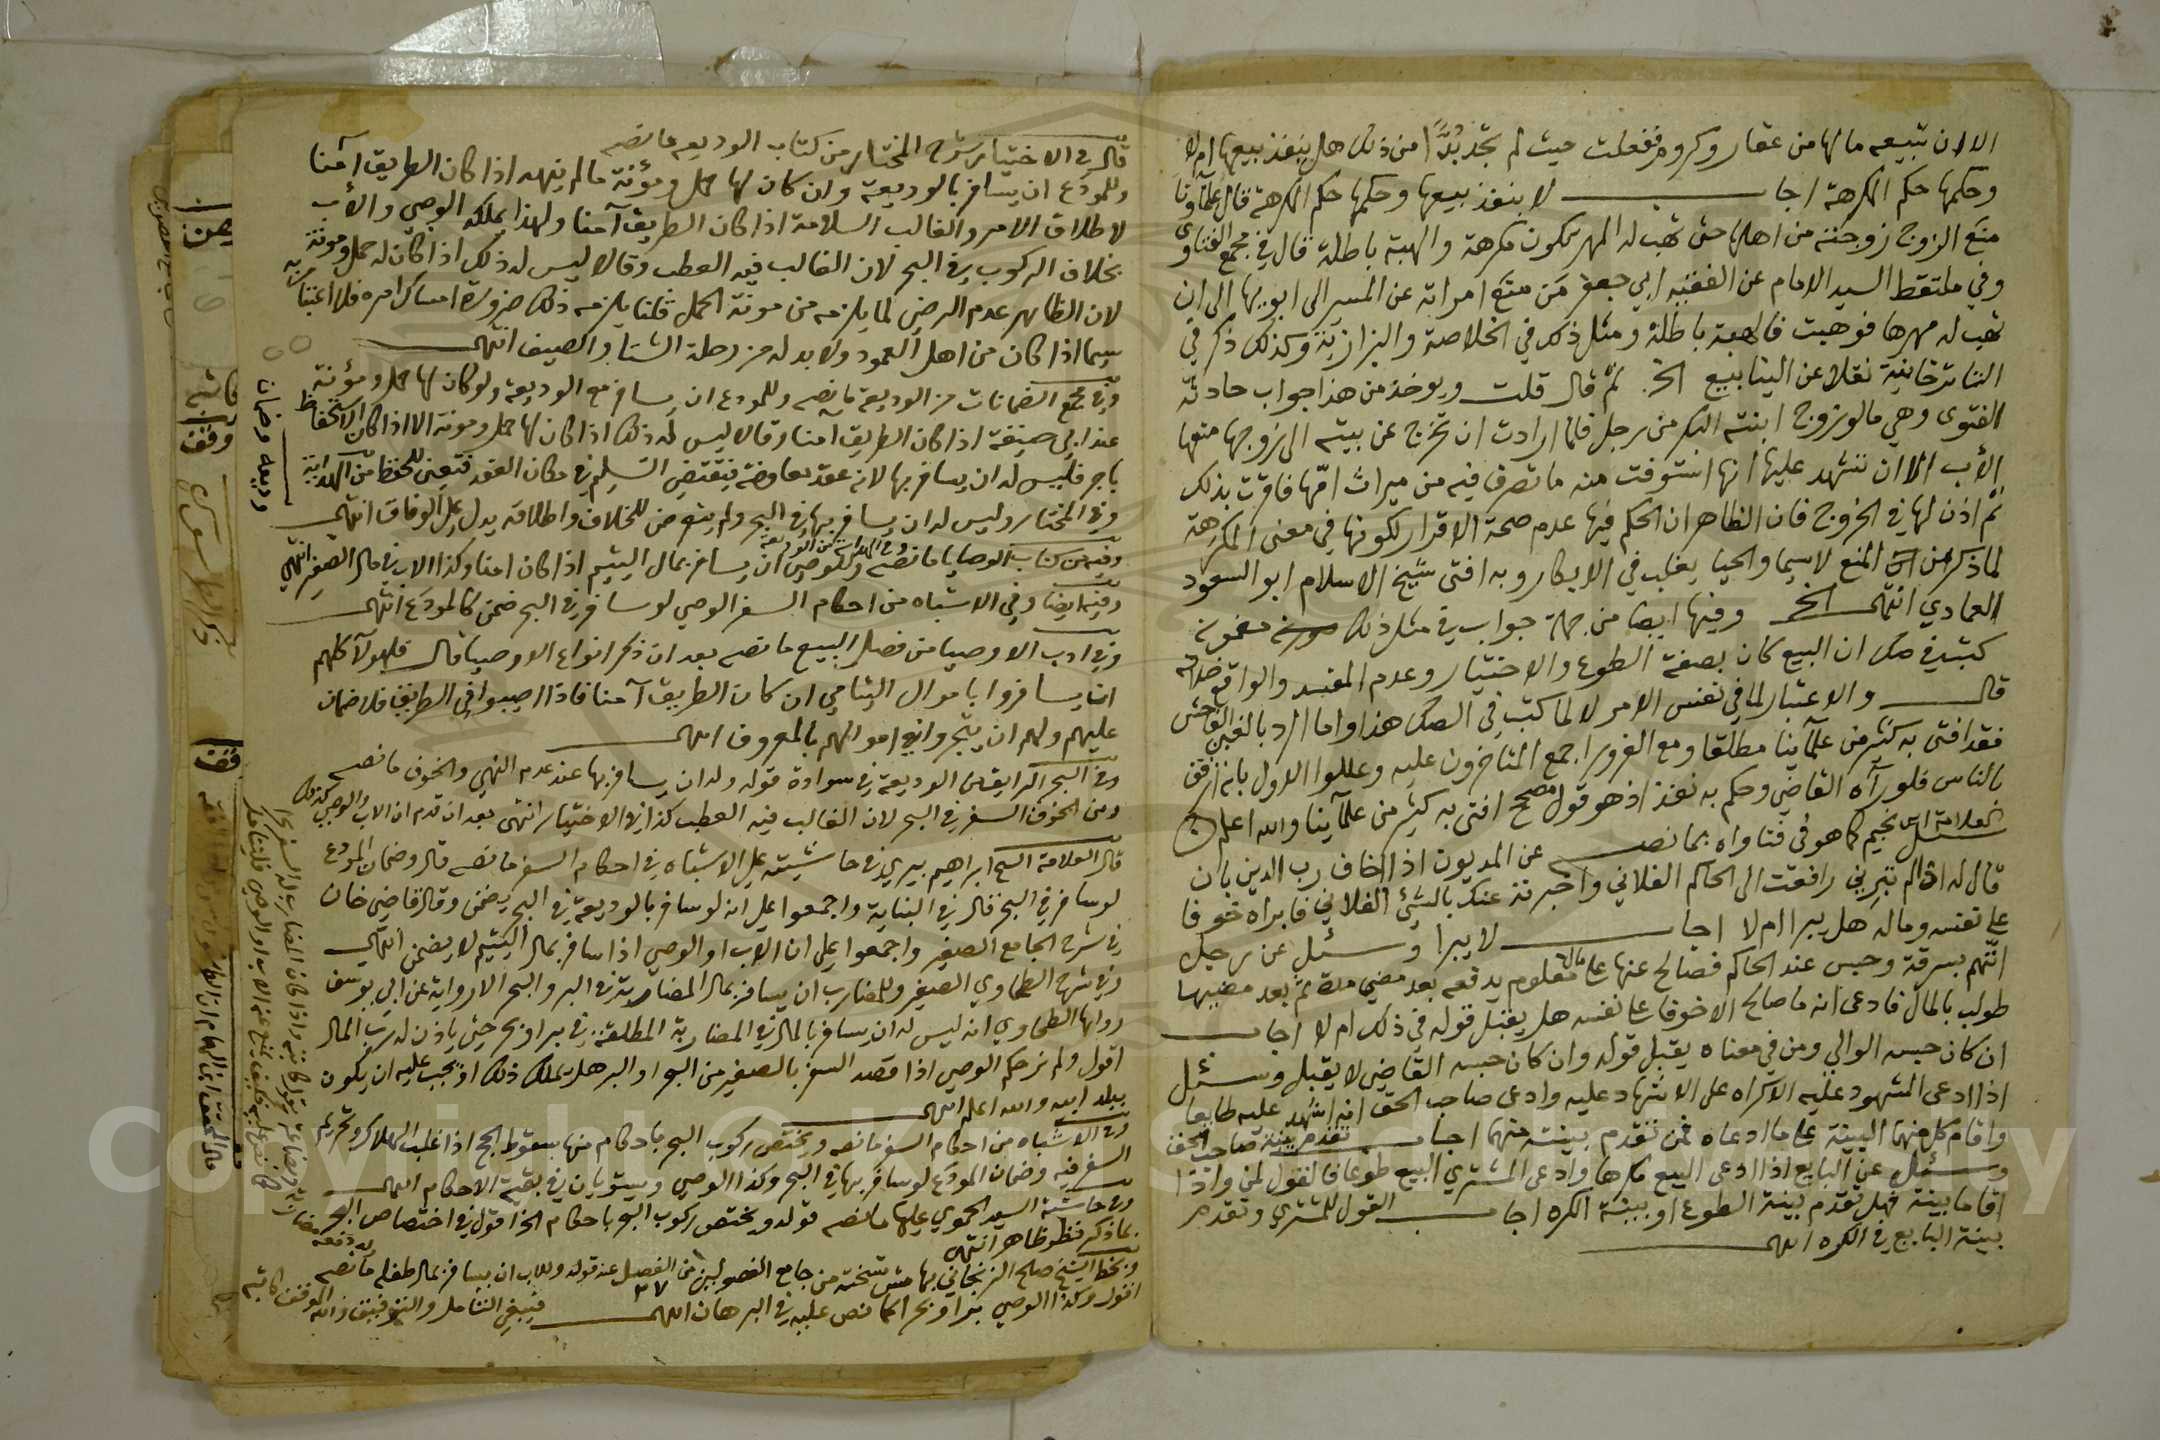 الا ان تبيعه مالها من عقار وكروم ففعلت حيث لم تجد بدًّا من ذلك هل ينفذ بيعها ام لا
وحكمها حكم المكرهة اجاب لا ينفذ بيعها وحكمها حكم المكرهة قال علماؤنا
منع الزوج زوجته من اهلها حتى تهب له المهر تكون مكرهة والهبة باطلة قال في مجمع الفتاوى
وفي ملتقط السيد الامام عن الفقيه ابي جعفر من منع امراته عن المسير الى ابويها الى ان
تهب له مهرها فوهبت فالهبة باطلة ومثل ذلك في الخلاصة والبزازية وكذلك ذكر في
التاترخانية نقلا عن الينابيع الخ. ثم قال قلت ويوخذ من هذا جواب حادثة
الفتوى وهي ما لو زوج ابنته البكر من رجل فلما ارادت ان تخرج عن بيته الى زوجها منعها
الأب الا ان تشهد عليها انها استوفت منه ما تصرف فيه من ميراث امّها فاقرت بذلك
ثم اذن لها في الخروج فان الظاهر ان الحكم فيها عدم صحة الاقرار لكونها في معنى المكرهة
لما ذكر من المنع لاسيما والحيا يغلب في الابكار وبه افتى شيخ الاسلام ابو السعود
العمادي انتهى الخ وفيها ايضا من جملة جواب في مثل ذلك
كتب في صك ان البيع كان بصفة الطوع والاختيار وعدم المفسد والواقع خلافه
قال والاعتبار لما في نفس الامر لا لما كتب في الصك هذا واما الرد بالغبن الفاحش
فقد افتى به كثير من علمآينا مطلقا ومع الغرور اجمع المتاخرون عليه وعللوا الاول بانه ارفق
بالناس فلو رآه القاضي وحكم به نفذ اذ هو قول مصحح افتى به كثير من علمآينا والله اعلم
سئل العلامة ابن نجيم كما هو في فتاواه بما نصه عن المديون اذا خاف رب الدين بان
قال له ان لم تبريني رافعت الى الحاكم الفلاني واخبرته عنك بالشئ الفلاني فابراه خوفا
على نفسه وماله هل يبرا ام لا اجاب لا يبرا وسئل عن رجل
اتّهم بسرقة وحبس عند الحاكم فصالح عنها على مال معلوم يدفعه بعد مضي مدة ثم بعد مضيها
طولب بالمال فادعى انه ما صالح الا خوفا على نفسه هل يقبل قوله في ذلك ام لا اجاب
ان كان حبسه الوالي ومن في معناه يقبل قوله وان كان حبسه القاضي لا يقبل وسئل
اذا ادعى المشهود عليه الاكراه على الاشهاد عليه وادعى صاحب الحق انه اشهد عليه طايعا
واقام كل منهما البينة على ما ادعاه فمن تقدم بينته منهما اجاب تقدم بينة صاحب الحق
وسئل عن البايع اذا ادعى البيع مكرها وادعى المشتري البيع طوعا فالقول لمن واذا
اقاما بينة فهل تقدم بينة الطوع او بينة الكره اجاب القول للمشتري وتقدم
بينة البايع في الكره انتهى
قال في الاختيار شرح المختار من كتاب الوديعه ما نصه
وللمودَع ان يسافر بالوديعة وان كان لها حمل ومؤنة ما لم ينهه اذا كان الطريق آمنا
لاطلاق الامر والغالب السلامة اذا كان الطريق آمنا ولهذا يملكه الوصي والأب
بخلاف الركوب في البحر لان الغالب فيه العطب وقالا ليس له ذلك اذا كان له حمل ومونة
لان الظاهر عدم الرضى لما يلزمه من مونة الحمل قلنا يلزمه ذلك ضرورة امساك امره فلا اعتبار به
سيما اذا كان من اهل العمود ولا بد له من رحلة الشتا والصيف انتهى
وفي مجمع الضمانات من الوديعة ما نصه وللمودع ان يسافر مع الوديعة ولو كان لها حمل ومؤنة
عند ابي حنيفة اذا كان الطريق امنا وقالا ليس له ذلك اذا كان لها حمل ومونة الا اذا كان الاستحفاظ
باجر فليس له ان يسافر بها لانه عقد معاوضة فيقتضي التسليم في مكان العقد فتعين للحفظ من الهداية
وفي المختار وليس له ان يسافر بها في البحر ولم يتعرض للخلاف واطلاقه يدل على الوفاق انتهى
وفيه من كتاب الوصايا ما نصه وللوصي ان يسافر بمال اليتيم اذا كان امنا وكذا الاب في مال الصغير انتهى
وفيه ايضا وفي الاشباه من احكام السفر الوصي لو سافر في البحر ضمن كالمودع انتهى
وفي ادب الاوصيا من فصل البيع ما نصه بعد ان ذكر انواع الاوصيا قال فلهولآ كلهم
ان يسافروا باموال اليتامى ان كان الطريق آمنا فاذا اصيبوا في الطريق فلا ضمان
عليهم ولهم ان يتجروا في اموالهم بالمعروف انتهى
وفي البحر الرايق من الوديعة في سوادة قوله وله ان يسافر بها عند عدم النهي والخوف ما نصه
ومن المخوف السفر في البحر لان الغالب فيه العطب كذا في الاختيار انتهى بعد ان قدم ان الاب والوصي كذلك
قال العلامة الشيخ ابراهيم بيري في حاشيته على الاشباه في احكام السفر ما نصه قال وضمان المودع
لو سافر في البحر قال في البناية واجمعوا على انه لو سافر بالوديعة في البحر يضمن وقال قاضي خان
في شرح الجامع الصغير واجمعوا على ان الاب او الوصي اذا سافر بمال اليتيم لا يضمن انتهى
وفي شرح الطحاوي الصغير وللمضارب ان يسافر بمال المضاربة في البر والبحر الا رواية عن ابي يوسف
رواها الطحاوي انه ليس له ان يسافر بالمال في المضاربة المطلقة في بر او بحر حتى ياذن له رب المال
اقول ولم نر حكم الوصي اذا قصد السفر بالصغير من البحر او البر هل يملك ذلك اذ يجب عليه ان يكون
ببلد ابيه والله اعلم انتهى
وفي الاشباه من احكام السفر ما نصه ويختص ركوب البحر باحكام منها سقوط الحج اذا غلب الهلاك وتحريم
السفر فيه وضمان المودَع لو سافر بها في البحر وكذا الوصي ويستويان في بقية الاحكام انتهى
وفي حاشية السيد الحموي عليها ما نصه قوله ويختص ركوب البحر باحكام الخ اقول في اختصاص البحر
بما ذكر نظر ظاهر انتهى
وبخط الشيخ صالح الزنجاني بهامش نسخته من جامع الفصولين من الفصل ٢٧ عند قوله وللاب ان يسافر بمال طفله ما نصه
اقول وكذا الوصي برا وبحرا كما نص عليه في البرهان انتهى فينبغي التامل والتوفيق والله الموفق كاتبه
وديعه وضمان
رهن
كاتبه
وقف